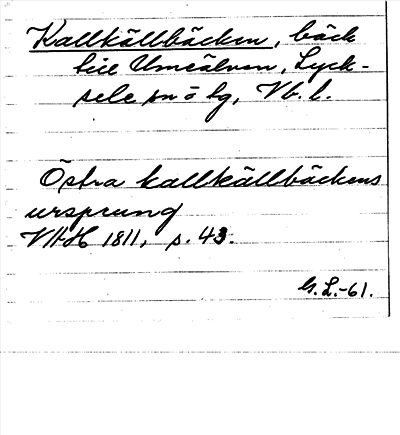 Kallkällbäcken, bäck
till Umeälven, Lyck-
sele sn o lg, Vb. l.
Östra kallkällbäckens
ursprung
VHH 1811, s. 43.
G. L.-61.